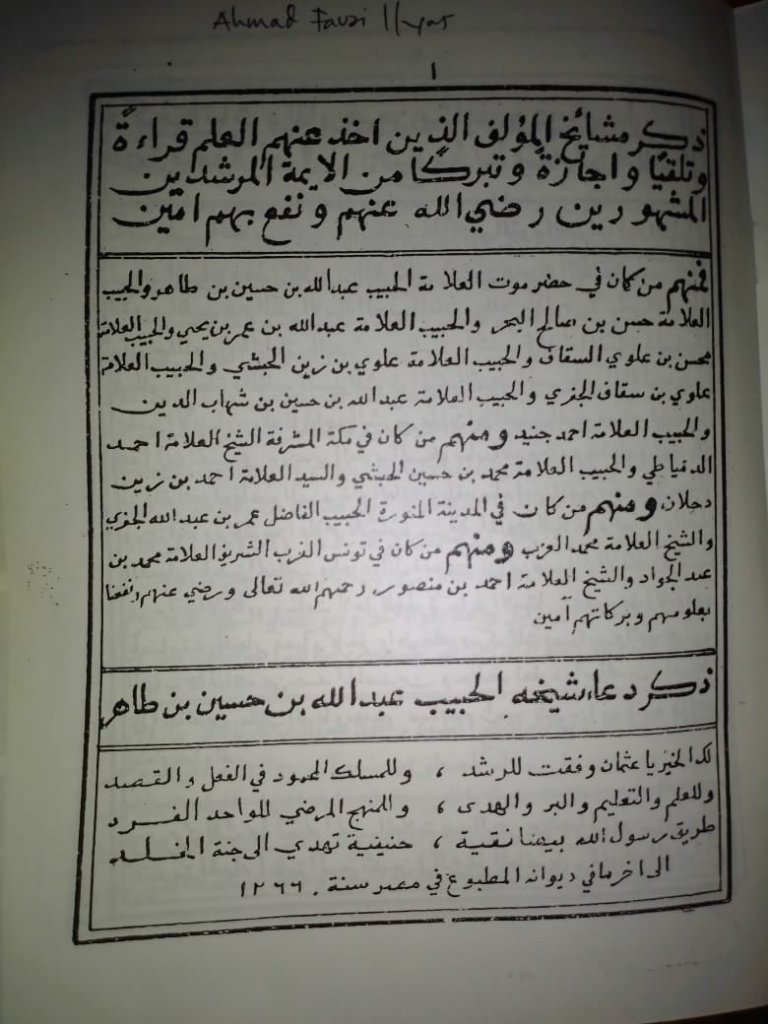 Ahmad Fauzi Ilyas
١
ذكر مشائخ المؤلف الذين اخذ عنهم العلم قراءةً
وتلقيًا واجازةً وتبركًا من الايمة المرشدين
المشهورين رضي الله عنهم ونفع بهم امين
فمنهم من كان في حضرموت العلامة الحبيب عبدالله بن حسين بن طاهر والحبيب
العلامة حسن بن صالح البحر والحبيب العلامة عبدالله بن عمر بن يحيى والحبيب العلامة
محسن بن علوي السقاف والحبيب العلامة علوي بن زين الحبشي والحبيب العلامة
علوي بن سقاف الجفري والحبيب العلامة عبدالله بن حسين بن شهاب الدين
والحبيب العلامة احمد جنيد ومنهم من كان في مكة المشرفة الشيخ العلامة احمد
الدمياطي والحبيب العلامة محمد بن حسين الحبشي والسيد العلامة احمد بن زين
دحلان ومنهم من كان في المدينة المنورة الحبيب الفاضل عمر بن عبدالله الجفري
والشيخ العلامة محمد العزب ومنهم من كان في تونس الغرب الشريف العلامة محمد بن
عبد الجواد والشيخ العلامة احمد بن منصور رحمهم الله تعالى ورضي عنهم ونفعنا
بعلومهم وبركاتهم آمين
ذكر دعاء شيخه الحبيب عبدالله بن حسين بن طاهر
لك الخير يا عثمان وفقت للرشد ، وللمسلك المحمود في الفعل والقصد
وللعلم والتعليم والبر والهدى ، والمنهج المرضي للواحد الفرد
طريق رسول الله بيضا نقية ، حنيفية تهدي الى جنة الخلد
الى اخر ما في ديوانه المطبوع في مصر سنة . ١٢٦٦